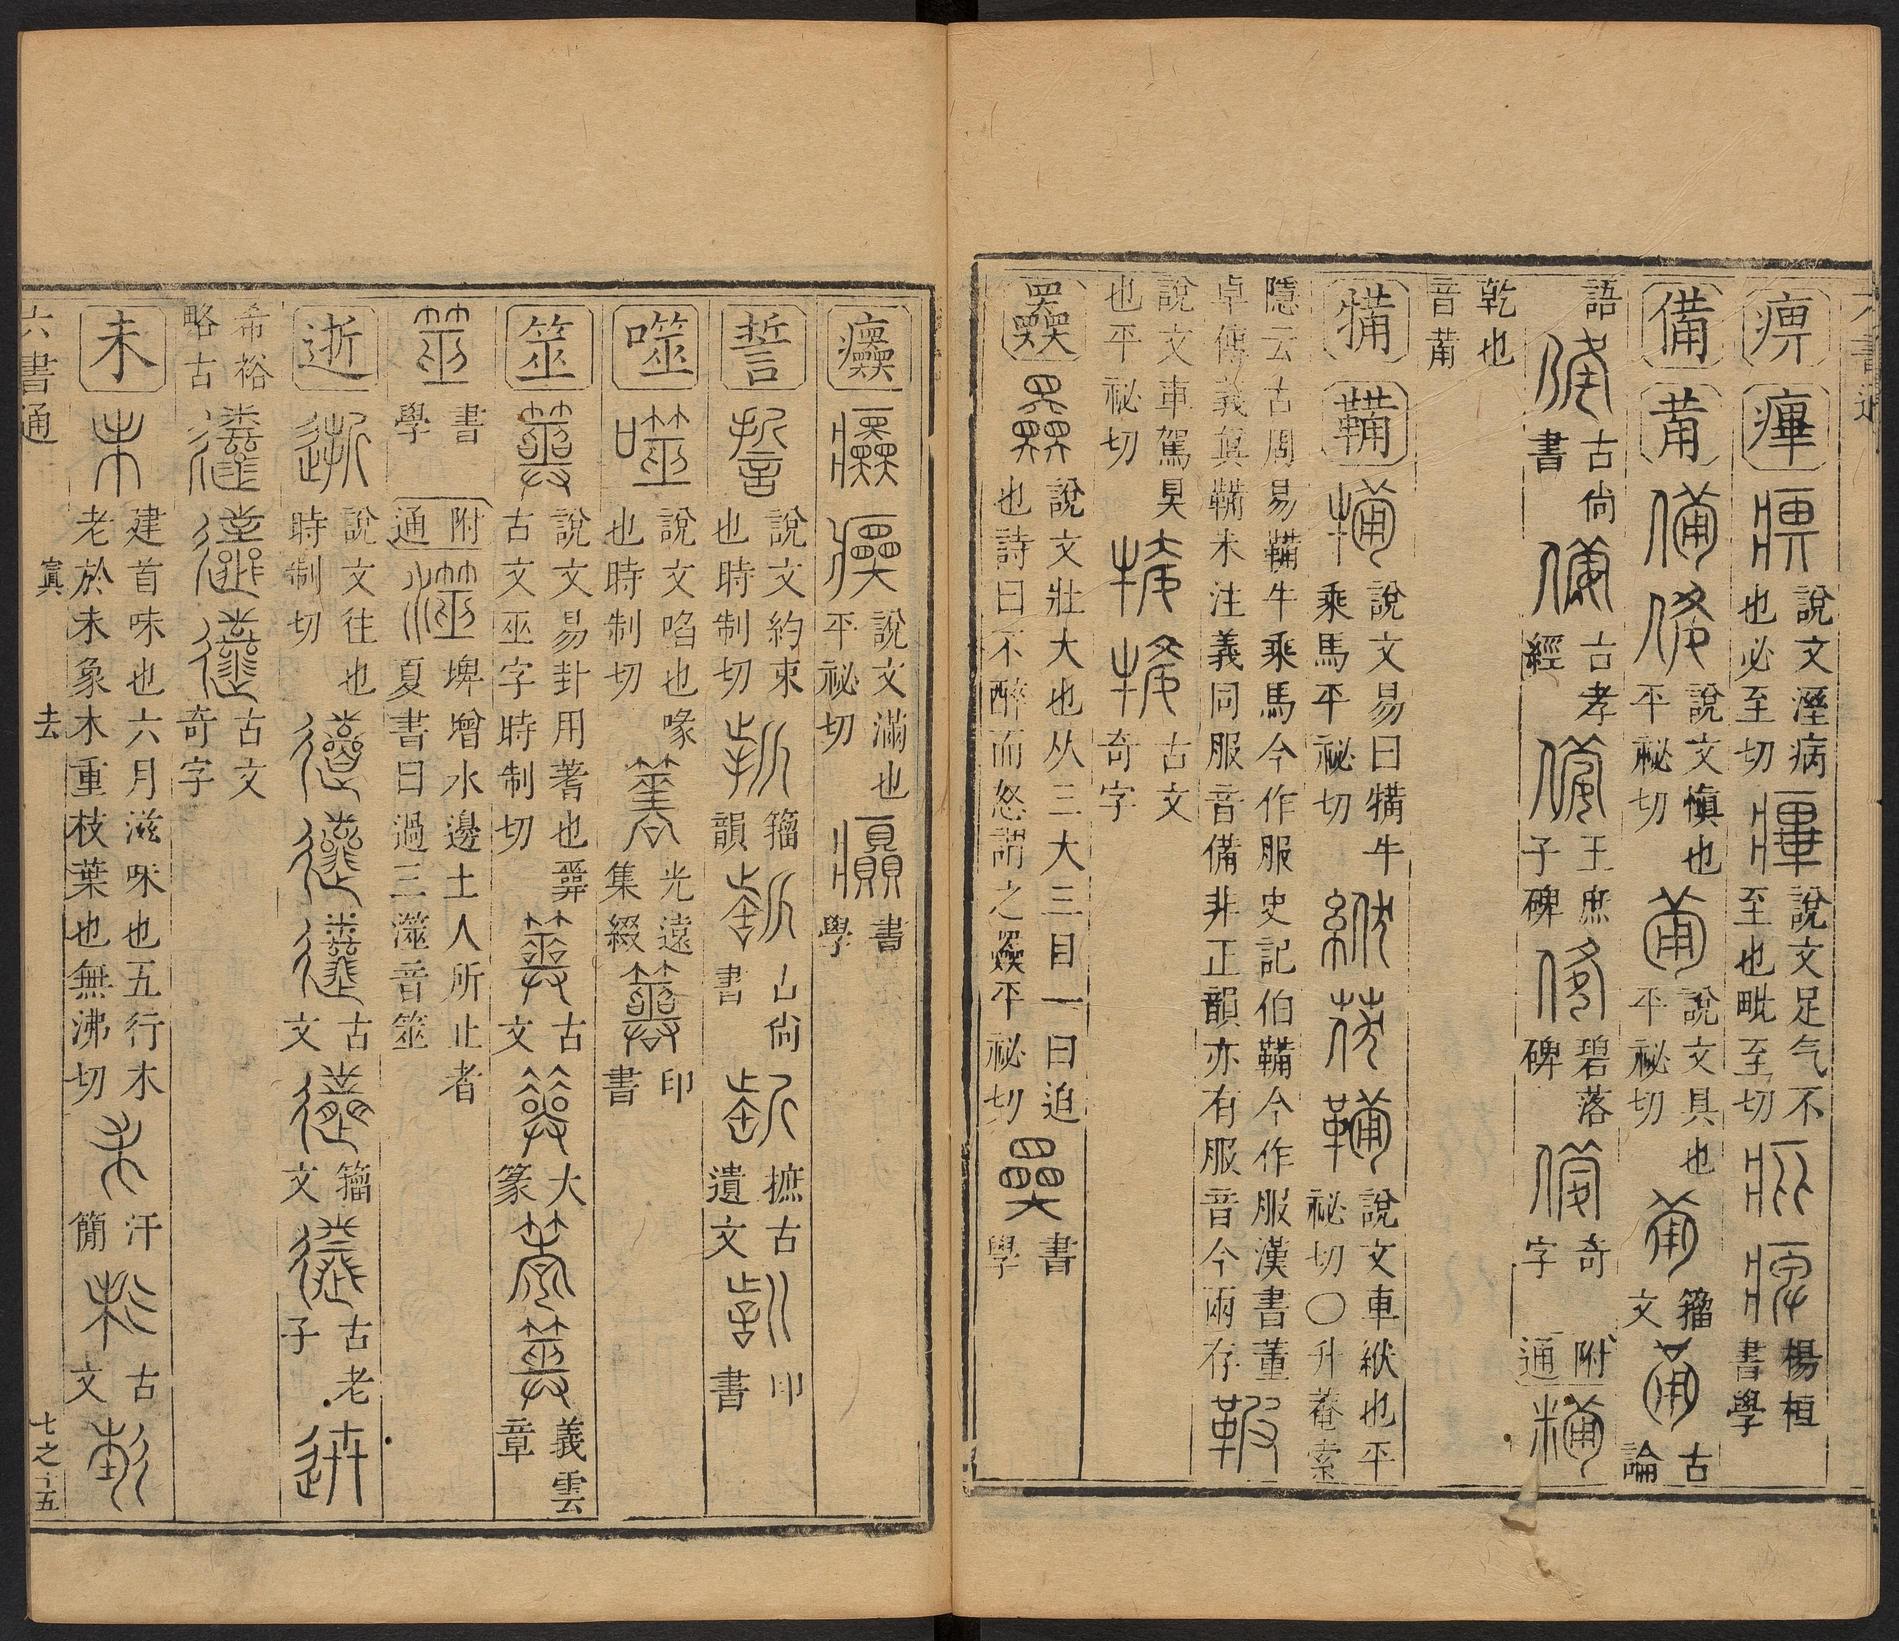 痹 痺 說文溼病也必至切 說文足气不至也毗至切 楊桓書學
備 𤰈 說文愼也平祕切 說文具也平祕切 籀文 古論
語 古尙書 古孝經 王庶子碑 碧落碑 奇字 附通
乾也音𤰈
犕 鞴 說文易曰犕牛乘馬平祕切 說文車紱也平祕切〇升菴索
隱云古周易鞴牛乘馬今作服史記伯鞴今作服漢書董
卓傳義眞鞴未注義同服音備非正韻亦有服音今兩存
說文車駕具也平祕切 古文奇字
奰 說文壯大也从三大三目一曰迫也詩曰不醉而怒謂之奰平祕切 書學
說文滿也平祕切 書學
誓 說文約束也時制切 籀韻 古尙書 摭古遺文 印書
噬 說文啗也喙也時制切 光遠集綴 印書
筮 說文易卦用蓍也𢍏古文巫字時制切 古文 大篆 義雲章
書學 附通 埤增水邊土人所止者夏書曰過三澨音筮
逝 說文往也時制切 古文 籀文 古老子
希裕略古 古文奇字
未 建首味也六月滋味也五行木老於未象木重枝葉也無沸切 汗簡 古文
六書通 寘 去 七之十五